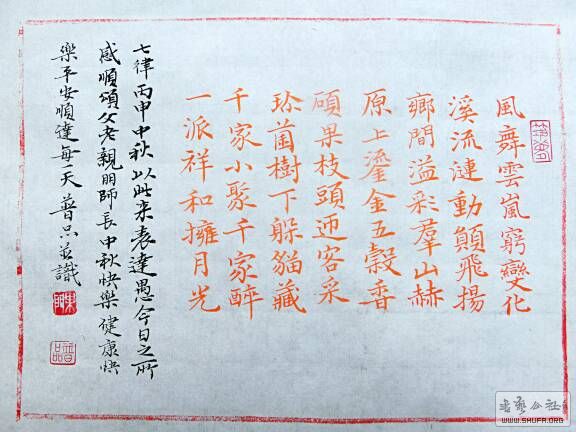 風舞雲嵐窮變化
溪流漣動顛飛揚
鄉間溢彩羣山赫
原上鎏金五穀香
碩果枝頭迎客采
珎菌樹下躲貓藏
千家小聚千家醉
一派祥和擁月光
七律丙申中秋以此來表達愚今日之所
感順頌父老親朋師長中秋快樂健康快
樂平安順達每天普並識
書藝公社
WWW.SHUFA.ORG